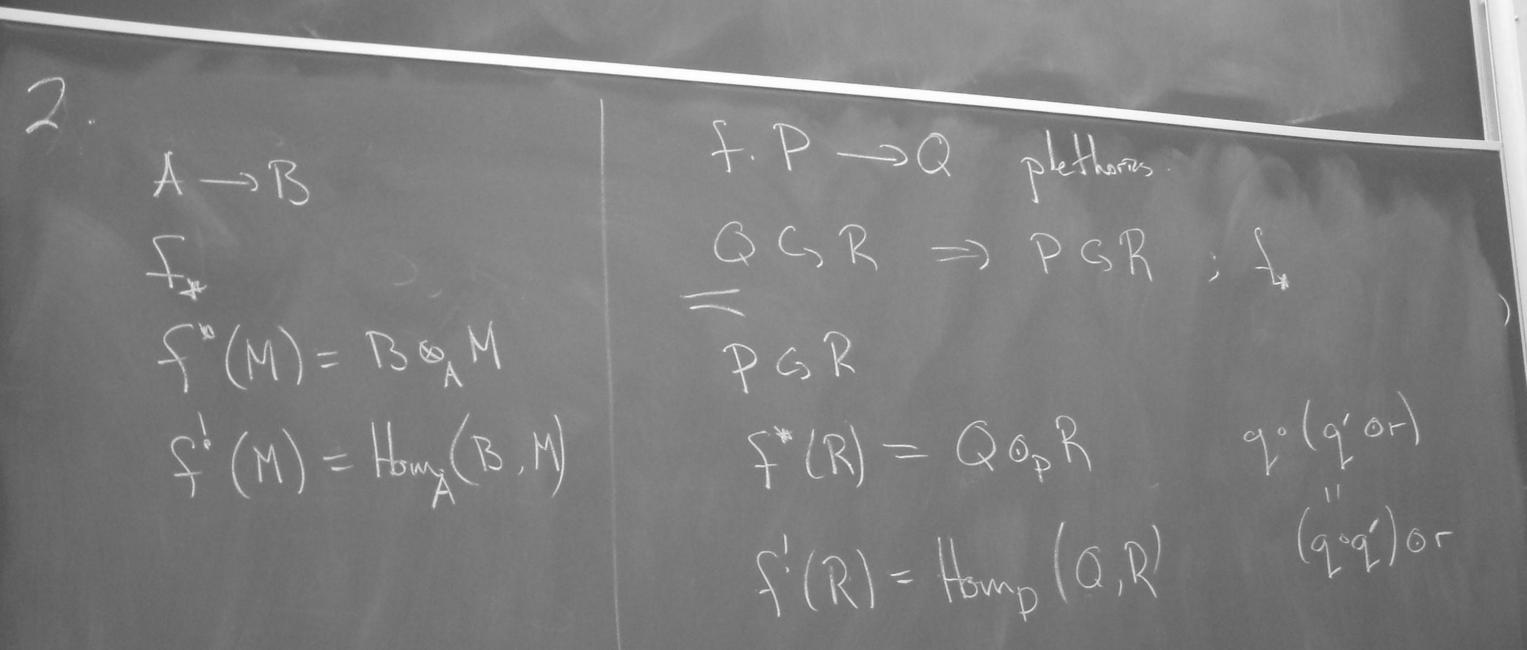 2.
A → B
f_*
f^*(M) = B ⊗_A M
f^!(M) = Hom_A(B, M)
f. P → Q plethories.
Q ↻ R ⇒ P ↻ R ; f_*
P ↻ R
f^*(R) = Q ⊙_P R
f^!(R) = Hom_P(Q, R)
q∘(q' ⊙ r)
=
(q∘q') ⊙ r